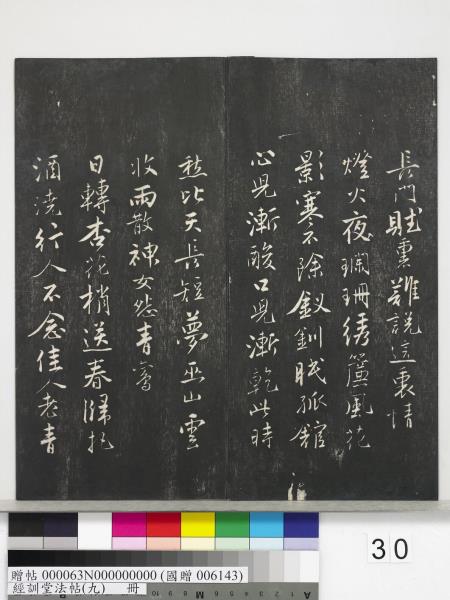 長門賦裏難說這裏情
燈火夜斕珊綉簾風花
影寒不除釵釧眠孤館
心見漸酸口見漸乾此時
愁比天長短夢巫山雲
收雨散神女愁青鸞
日轉杏花梢送春歸把
酒澆行人不念佳人老青
30
贈帖 000063N000000000 (國贈 006143)
經訓堂法帖(九) 冊